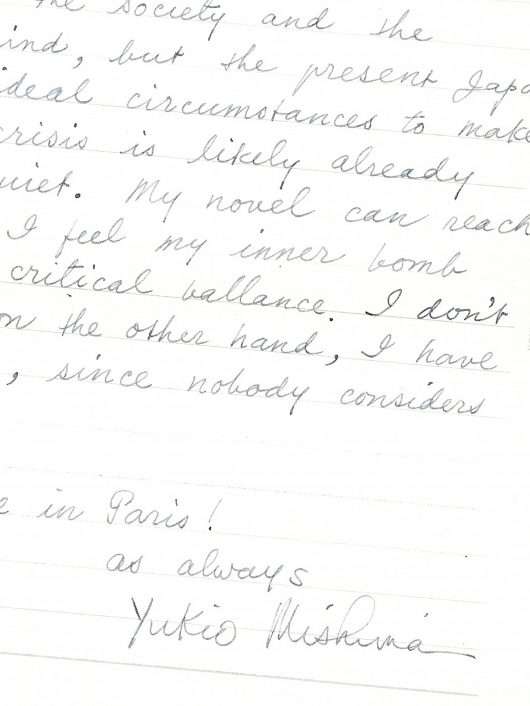 the society and the
ind, but the present Japa
ideal circumstances to make
crisis is likely already
uiet. My novel can reach
I feel my inner bomb
critical ballance. I don't
on the other hand, I have
, since nobody considers
e in Paris!
as always
Yukio Mishima